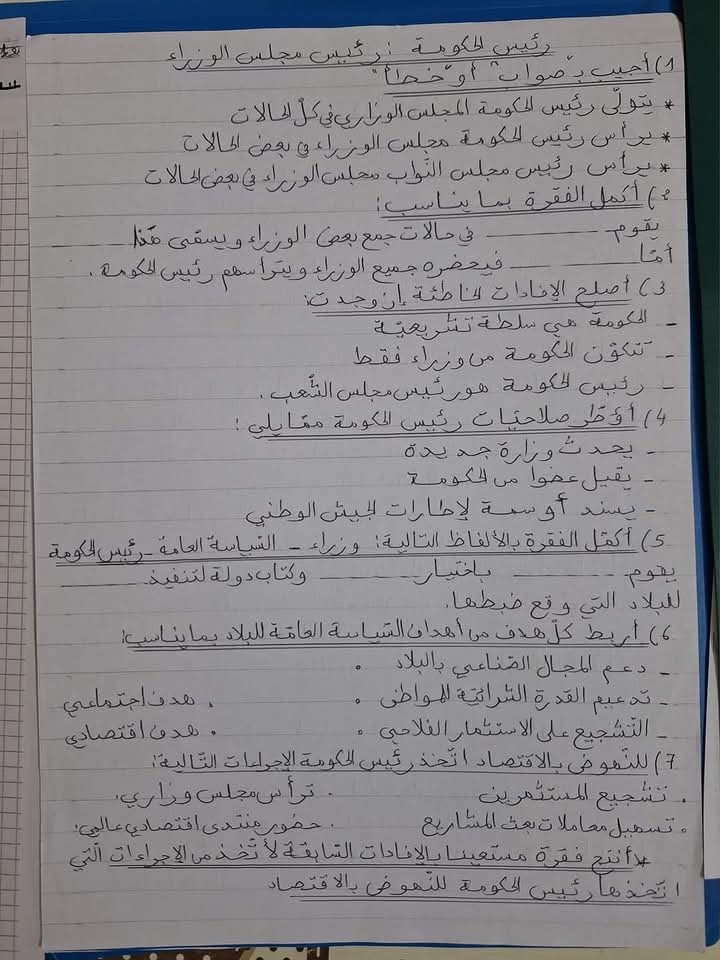 رئيس الحكومة : رئيس مجلس الوزراء
1) أجيب بـ "صواب" أو "خطأ"
* يتولّى رئيس الحكومة المجلس الوزاري في كلّ الحالات
* يرأس رئيس الحكومة مجلس الوزراء في بعض الحالات
* يرأس رئيس مجلس النّواب مجلس الوزراء في بعض الحالات
2) أكمل الفقرة بما يناسب:
يقوم ــــــــ في حالات جمع بعض الوزراء ويسمّى هذا
أمّا ــــــــ فيحضره جميع الوزراء ويترأسهم رئيس الحكومة.
3) أصلح الإفادات الخاطئة إن وجدت:
- الحكومة هي سلطة تشريعيّة
- تتكوّن الحكومة من وزراء فقط
- رئيس الحكومة هو رئيس مجلس الشّعب.
4) أؤطّر صلاحيّات رئيس الحكومة ممّا يلي:
- يحدث وزارة جديدة
- يقيل عضوا من الحكومة
- يسند أوسمة لإطارات الجيش الوطني
5) أكمّل الفقرة بالألفاظ التالية: وزراء - السّياسة العامة - رئيس الحكومة
يقوم ــــــــ باختيار ــــــــ وكتاب دولة لتنفيذ ــــــــ
للبلاد التي وقع ضبطها.
6) أربط كلّ هدف من أهداف السّياسة العامّة للبلاد بما يناسب:
- دعم المجال الصّناعي بالبلاد •
- تدعيم القدرة الشّرائيّة للمواطن • • هدف اجتماعي
- التّشجيع على الاستثمار الفلاحي • • هدف اقتصادي
7) للنّهوض بالاقتصاد اتّخذ رئيس الحكومة الإجراءات التّالية:
• تشجيع المستثمرين • ترأس مجلس وزاري.
• تسهيل معاملات بعث المشاريع • حضور منتدى اقتصادي عالمي.
* أنتج فقرة مستعينا بالإفادات السّابقة لأتّخذ من الإجراءات الّتي
اتّخذها رئيس الحكومة للنّهوض بالاقتصاد